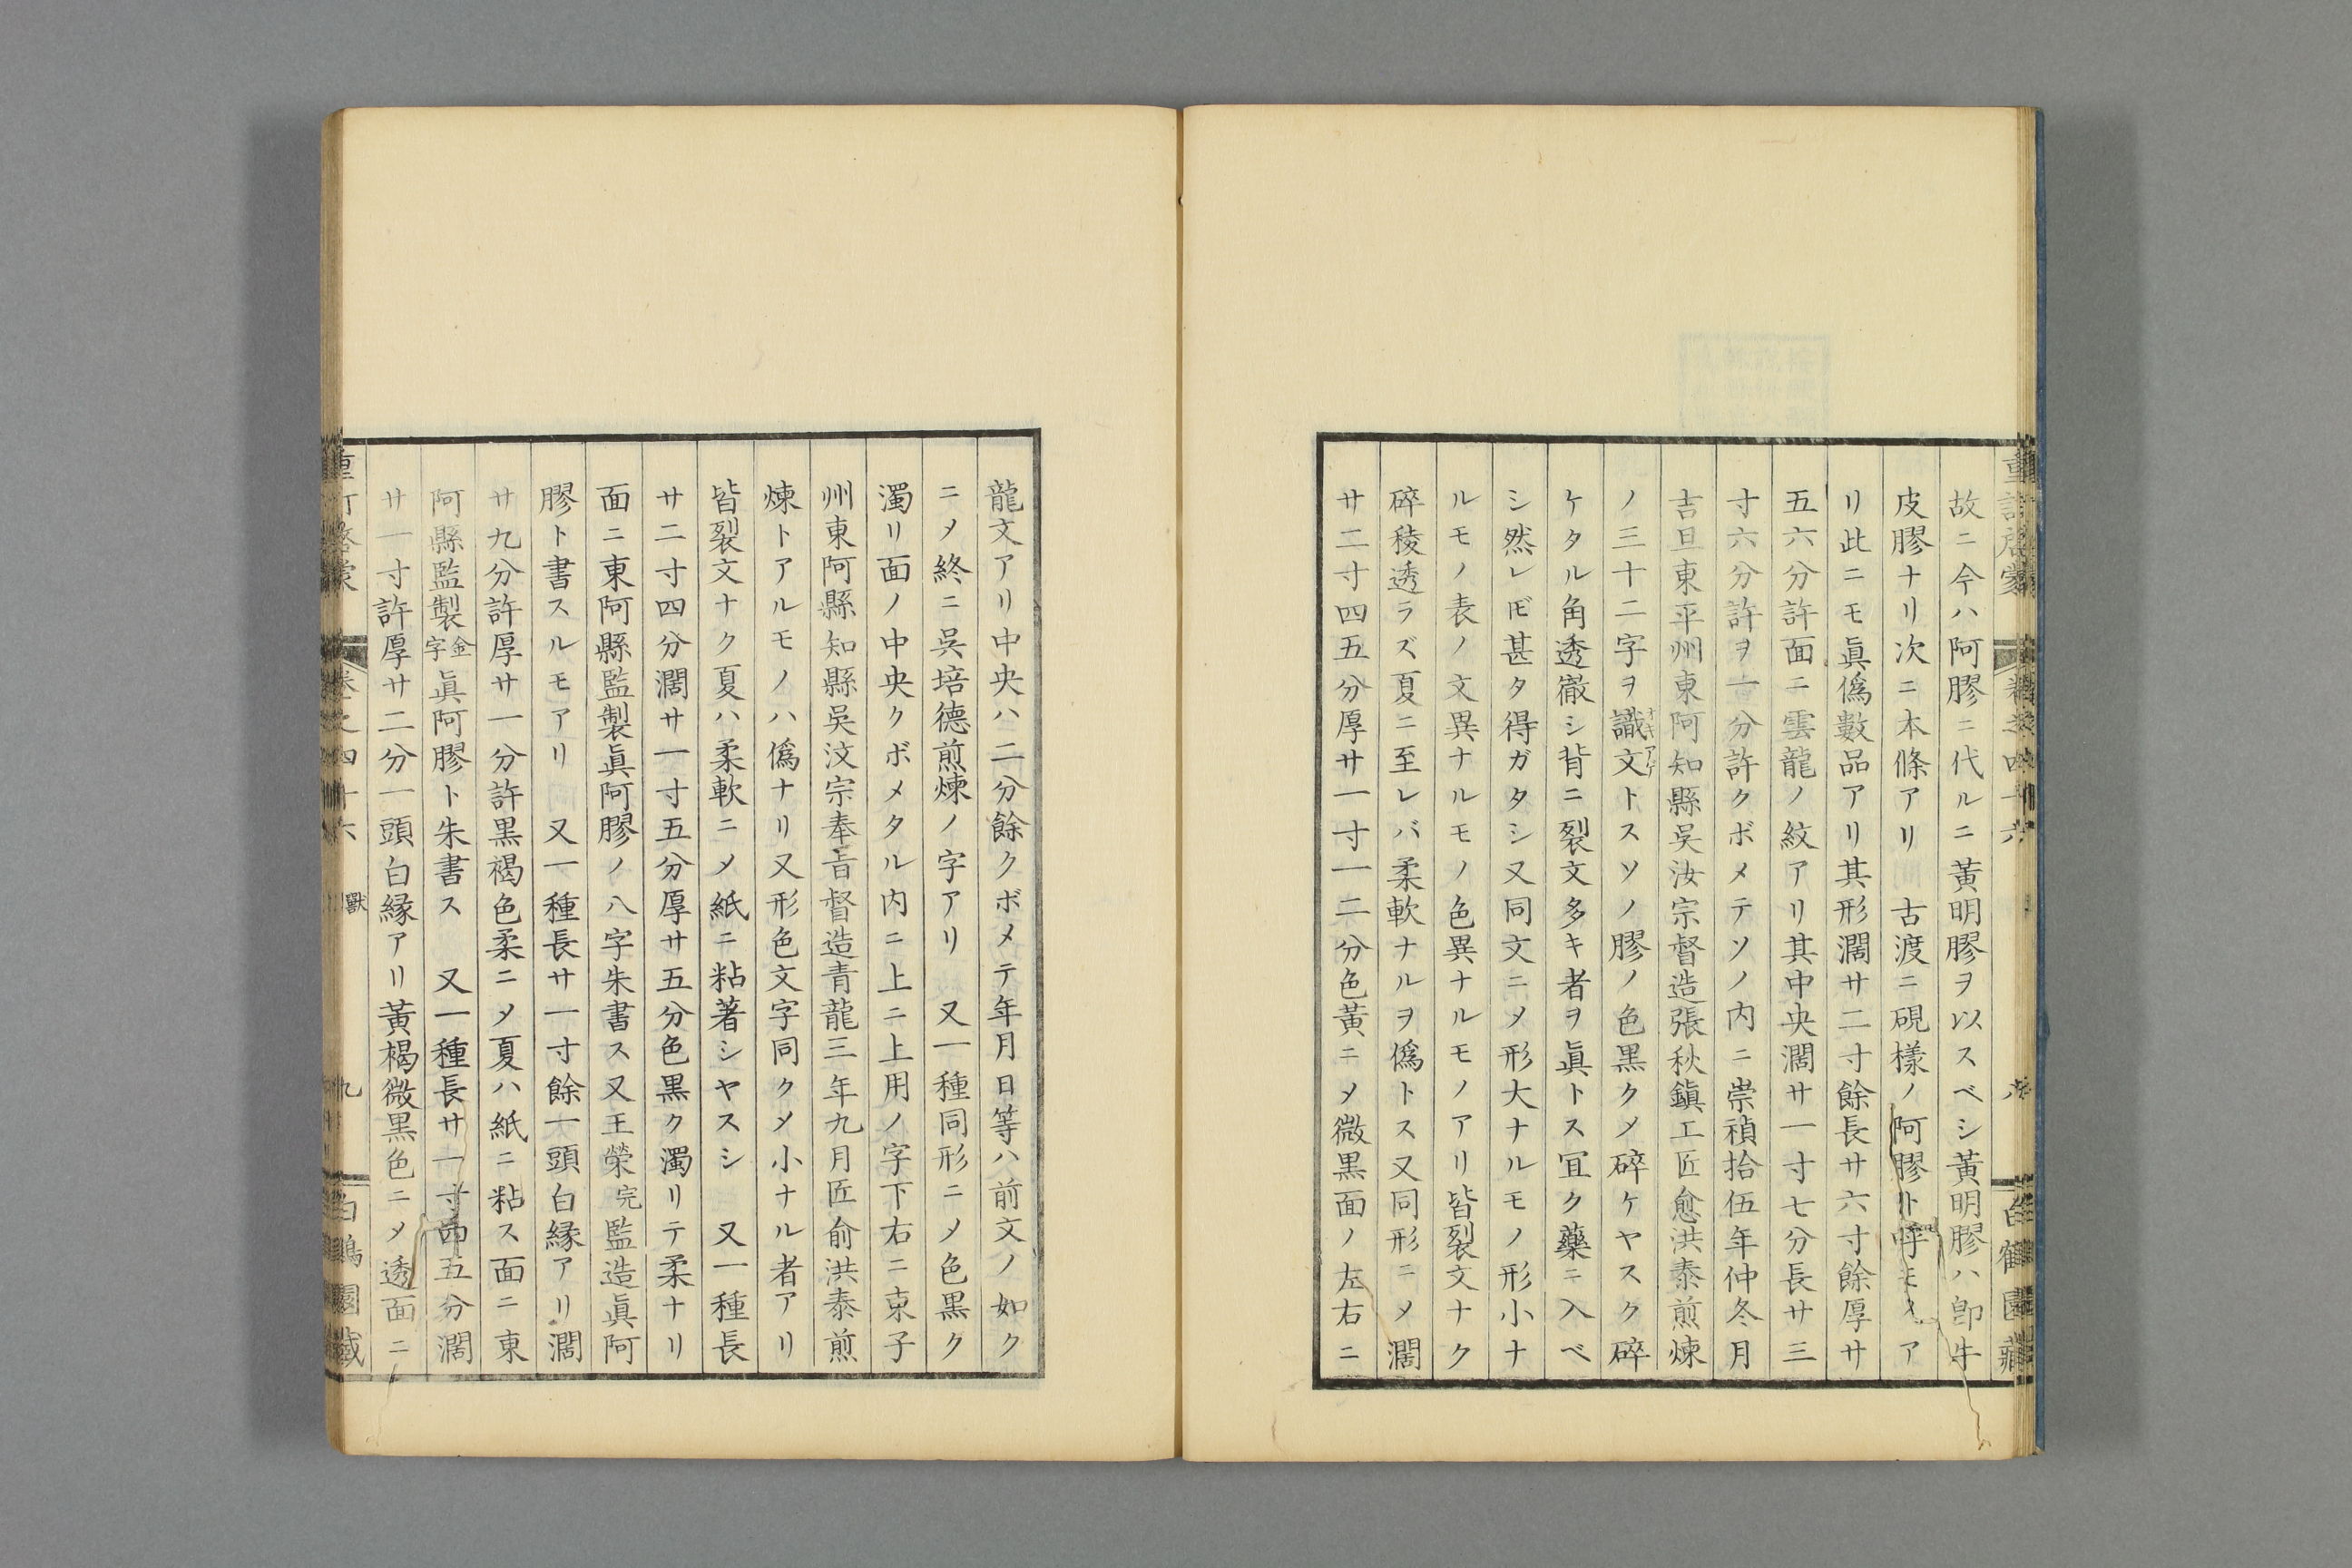 故ニ今ハ阿膠ニ代ルニ黃明膠ヲ以スベシ黃明膠ハ卽牛
皮膠ナリ次ニ本條アリ　古渡ニ硯樣ノ阿膠ト呼モノア
リ此ニモ眞僞數品アリ其形濶サ二寸餘長サ六寸餘厚サ
五六分許面ニ雲龍ノ紋アリ其中央濶サ一寸七分長サ三
寸六分許ヲ一分許クボメテソノ内ニ崇禎拾伍年仲冬月
吉旦東平州東阿知縣吳汝宗督造張秋鎭工匠愈洪泰煎煉
ノ三十二字ヲ識文トスソノ膠ノ色黒クメ碎ケヤスク碎
ケタル角透徹シ背ニ裂文多キ者ヲ眞トス冝ク藥ニ入ベ
シ然レ𪜈甚タ得ガタシ又同文ニメ形大ナルモノ形小ナ
ルモノ表ノ文異ナルモノ色異ナルモノアリ皆裂文ナク
碎稜透ラズ夏ニ至レバ柔軟ナルヲ僞トス又同形ニメ濶
サ二寸四五分厚サ一寸一二分色黃ニメ微黒面ノ左右ニ
龍文アリ中央ハ二分餘クボメテ年月日等ハ前文ノ如ク
ニメ終ニ吳培德煎煉ノ字アリ　又一種同形ニメ色黒ク
濁リ面ノ中央クボメタル内ニ上ニ上用ノ字下右ニ東子
州東阿縣知縣吳汶宗奉旨督造青龍三年九月匠俞洪泰煎
煉トアルモノハ僞ナリ又形色文字同クメ小ナル者アリ
皆裂文ナク夏ハ柔軟ニメ紙ニ粘著シヤスシ　又一種長
サ二寸四分濶サ一寸五分厚サ五分色黒ク濁リテ柔ナリ
面ニ東阿縣監製眞阿膠ノ八字朱書ス又王榮完監造眞阿
膠ト書スルモアリ　又一種長サ一寸餘一頭白縁アリ濶
サ九分許厚サ一分許黒褐色柔ニメ夏ハ紙ニ粘ス面ニ東
阿縣監製金字眞阿膠ト朱書ス　又一種長サ一寸四五分濶
サ一寸許厚サ二分一頭白縁アリ黃褐微黒色ニメ透面ニ
卷之四十六　獸　九